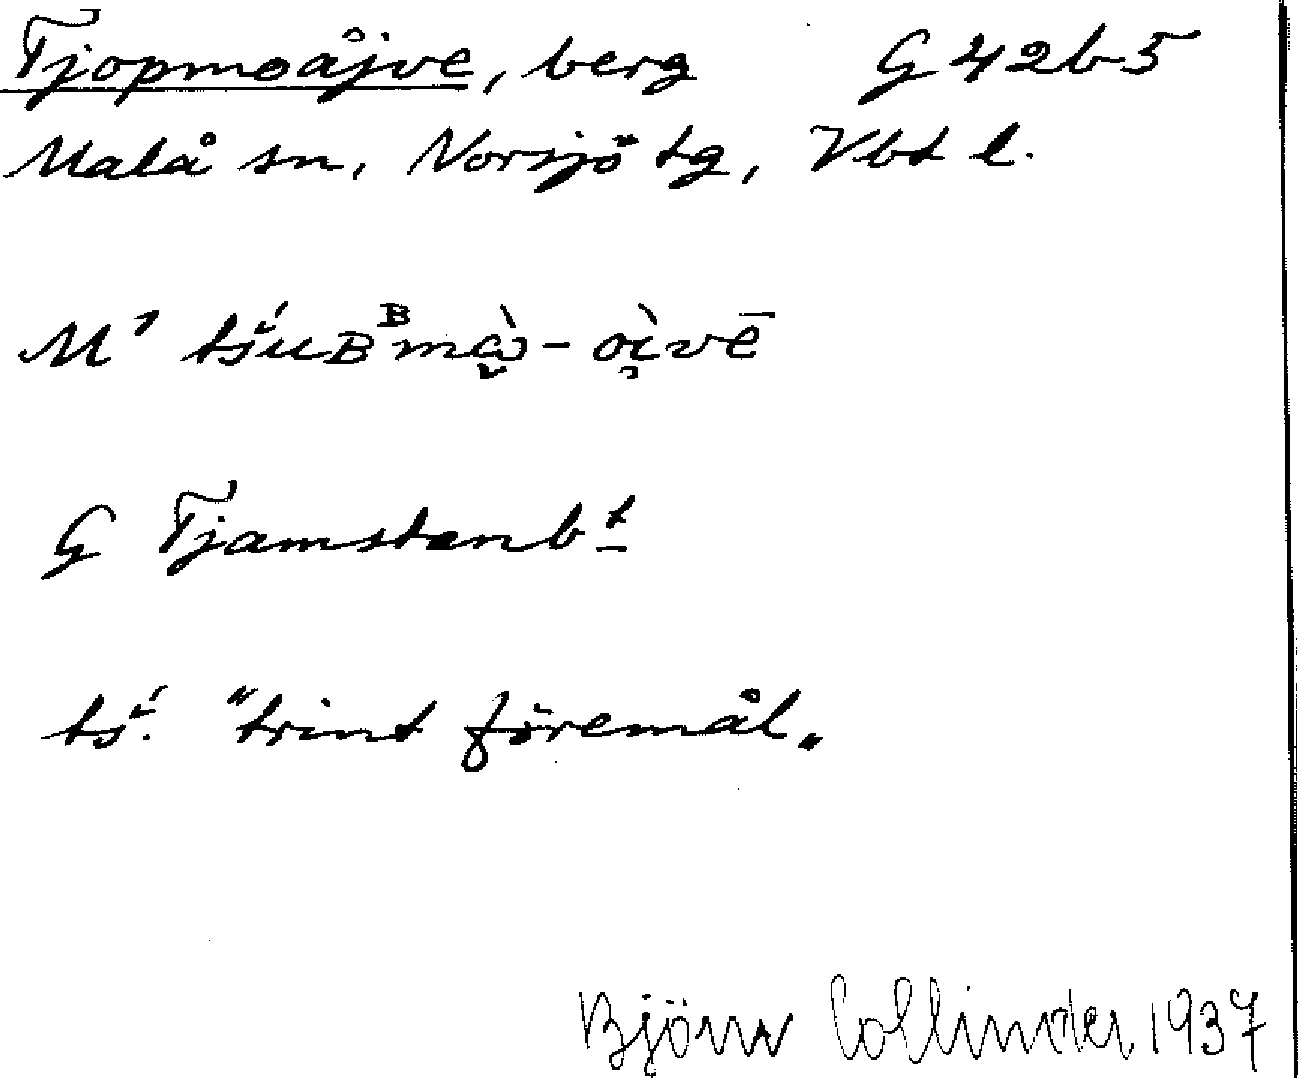 Tjopmoåjve, berg G 42b5
Malå sn, Norsjö tg, Vbt l.
G Tjamstanbt
tś. "trint föremål"
Björn Collinder 1937